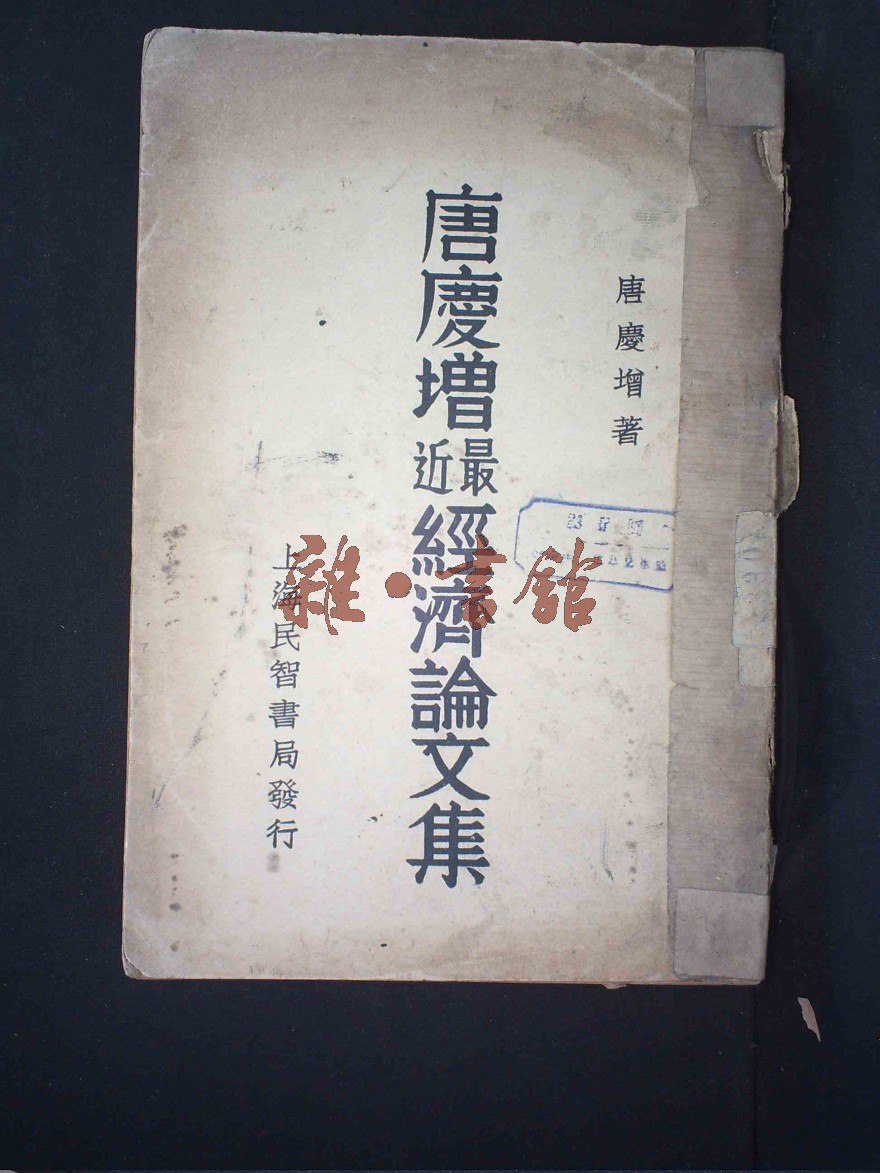 唐慶增著
唐慶增最近經濟論文集
上海民智書局發行
雜·書館